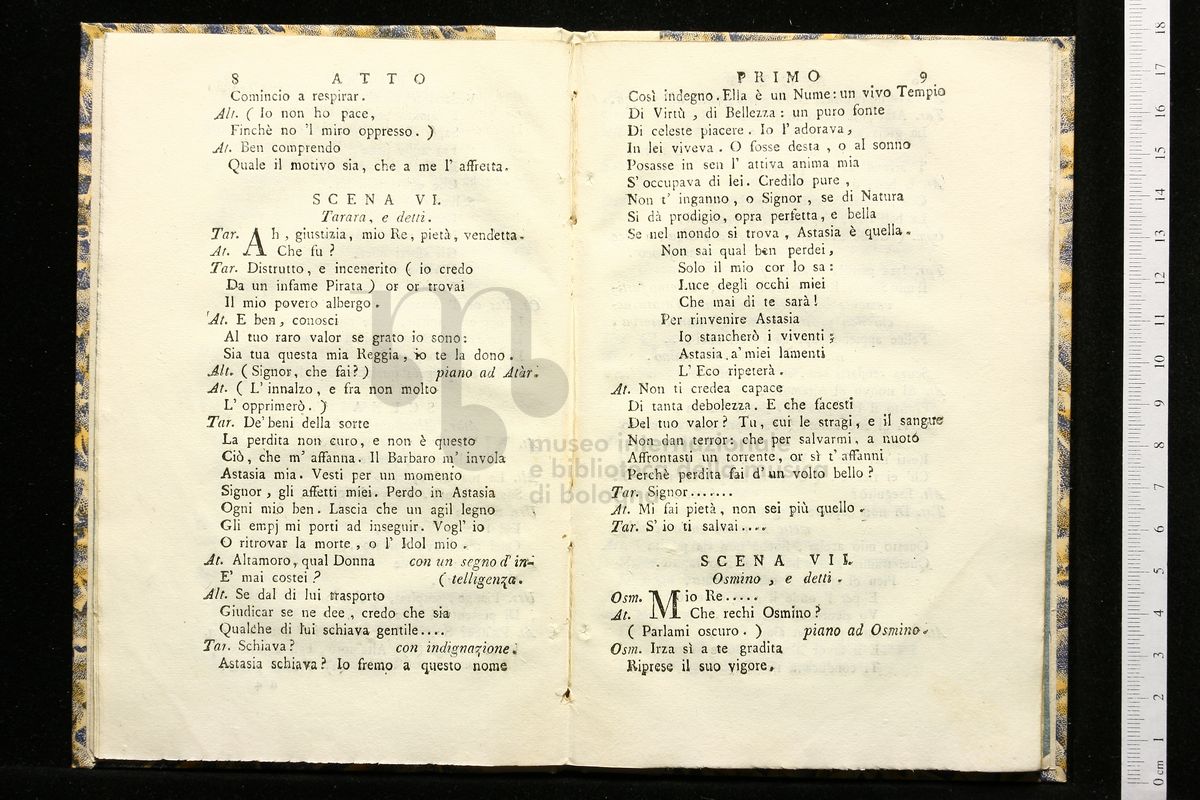 8 ATTO
Comincio a respirar.
Alt. ( Io non ho pace,
Finchè no 'l miro oppresso. )
At. Ben comprendo
Quale il motivo sia, che a me l' affretta.
SCENA VI.
Tarara, e detti.
Tar. Ah, giustizia, mio Re, pietà, vendetta.
At. Che fu ?
Tar. Distrutto, e incenerito ( io credo
Da un infame Pirata ) or or trovai
Il mio povero albergo.
At. E ben, conosci
Al tuo raro valor se grato io sono:
Sia tua questa mia Reggia, io te la dono.
Alt. ( Signor, che fai? ) piano ad Atàr.
At. ( L' innalzo, e fra non molto
L' opprimerò. )
Tar. De' beni della sorte
La perdita non curo, e non è questo
Ciò, che m' affanna. Il Barbaro m' invola
Astasia mia. Vesti per un momento
Signor, gli affetti miei. Perdo in Astasia
Ogni mio ben. Lascia che un agil legno
Gli empj mi porti ad inseguir. Vogl' io
O ritrovar la morte, o l' Idol mio.
At. Altamoro, qual Donna con un segno d' in-
E' mai costei ? ( telligenza.
Alt. Se dal di lui trasporto
Giudicar se ne dee, credo che sia
Qualche di lui schiava gentile....
Tar. Schiava ? con indignazione.
Astasia schiava? Io fremo a questo nome
PRIMO 9
Così indegno. Ella è un Nume: un vivo Tempio
Di Virtù, di Bellezza: un puro fonte
Di celeste piacere. Io l' adorava,
In lei viveva. O fosse desta, o al sonno
Posasse in sen l' attiva anima mia
S' occupava di lei. Credilo pure,
Non t' inganno, o Signor, se di Natura
Si dà prodigio, opra perfetta, e bella
Se nel mondo si trova, Astasia è quella.
Non sai qual ben perdei,
Solo il mio cor lo sa:
Luce degli occhi miei
Che mai di te sarà!
Per rinvenire Astasia
Io stancherò i viventi;
Astasia a' miei lamenti
L' Eco ripeterà.
At. Non ti credea capace
Di tanta debolezza. E che facesti
Del tuo valor? Tu, cui le stragi, e il sangue
Non dan terror: che per salvarmi, a nuoto
Affrontasti un torrente, or sì t' affanni
Perchè perdita fai d' un volto bello ?
Tar. Signor.......
At. Mi fai pietà, non sei più quello.
Tar. S' io ti salvai....
SCENA VII.
Osmino, e detti.
Osm. Mio Re.....
At. Che rechi Osmino ?
( Parlami oscuro. ) piano ad Osmino.
Osm. Irza sì a te gradita
Riprese il suo vigore,
museo internazionale
e biblioteca della musica
di bologna
0 cm 1 2 3 4 5 6 7 8 9 10 11 12 13 14 15 16 17 18